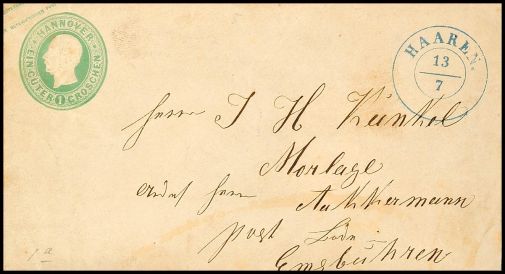 HANNOVER
EIN GUTER GROSCHEN
1
HAAREN.
13
7
Herrn J H Künkel
Morlage
Herrn
Aakkermann
post
Emsbühren